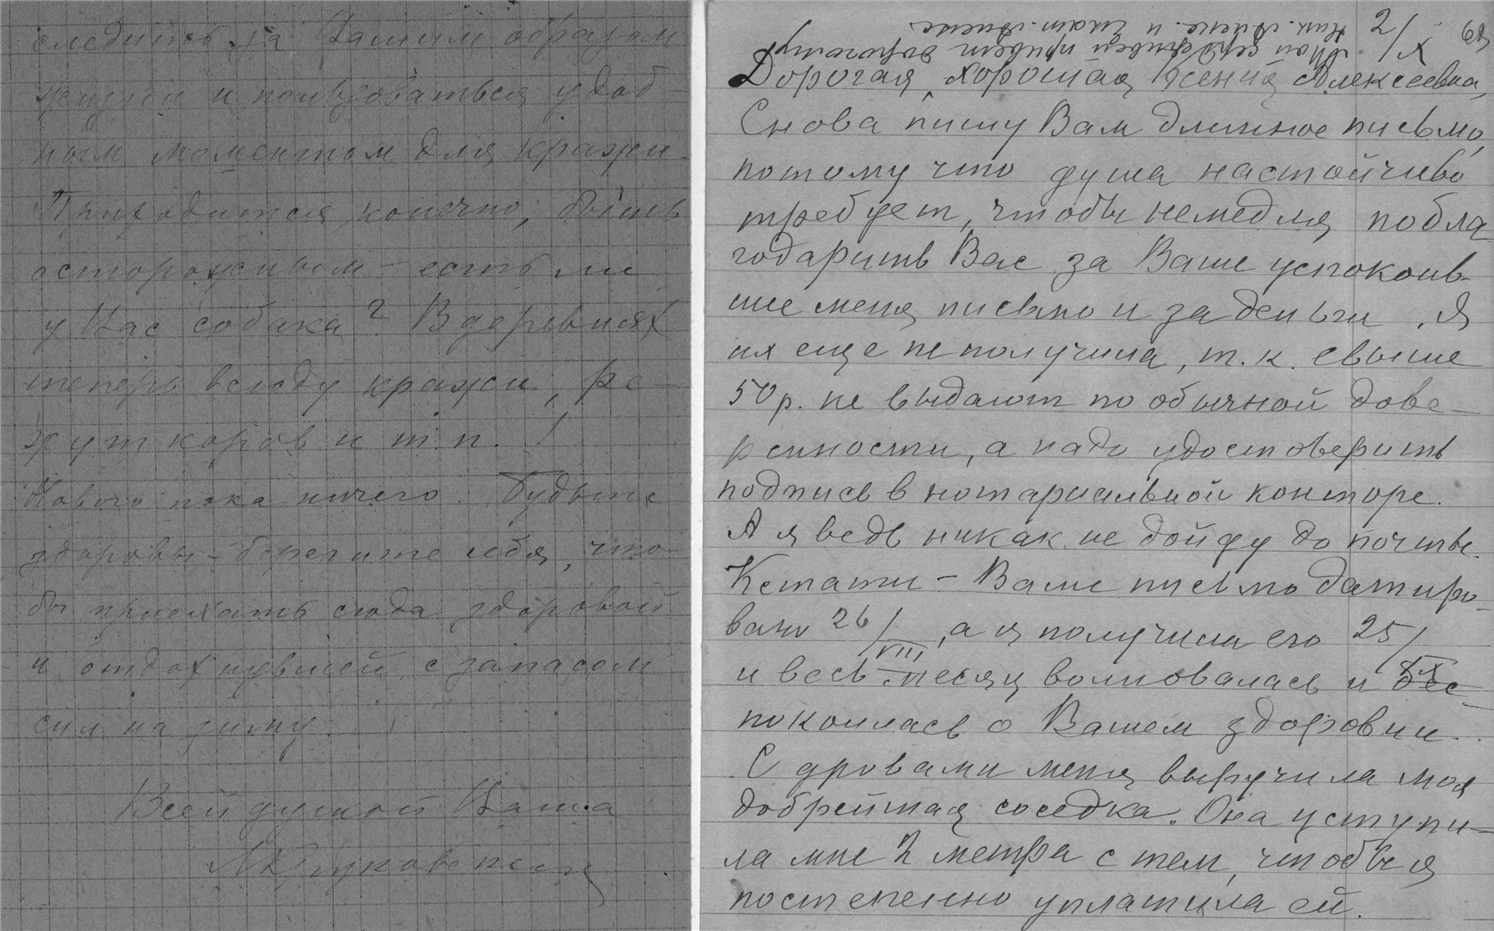 следить за Вашим образом
жизни и пользоваться удоб
ным моментом для кражи.
Приходится, конечно, быть
осторожным – есть ли
у Вас собака? В деревнях
теперь всюду кражи, ре-
жут коров и т.п.!
Нового пока ничего. Будьте
здоровы – берегите себя, что-
бы приехать сюда здоровой
и отдохнувшей с запасом
сил на зиму.
Всей душой Ваша
Мой сердечный привет дорогому
2/X
Дорогая, хорошая Ксения Алексеевна,
Снова пишу Вам длинное письмо,
потому что душа настойчиво
требует, чтобы немедля побла
годарить Вас за Ваше успокоив-
шее меня письмо и за деньги. Я
их еще не получила, т.к. свыше
50 р. не выдают по обычной дове-
ренности, а надо удостоверить
подпись в нотариальной конторе.
А я ведь никак не дойду до почты.
Кстати – Ваше письмо датиро-
вано 26/VIII, а я получила его 25/IX
и весь месяц волновалась и бес-
покоилась о Вашем здоровии.
С дровами меня выручила моя
добрейшая соседка. Она уступи-
ла мне 2 метра с тем, чтобы я
постепенно уплатила ей.